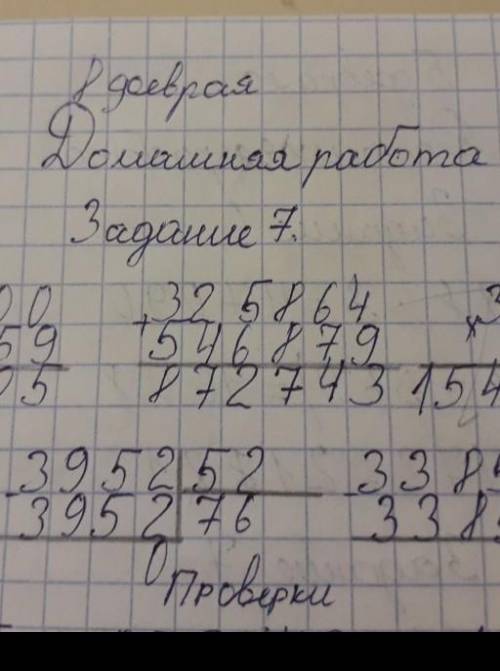 8 февраля
Домашняя работа
Задание 7.
00 325864 3
59 + 546879 ×
05 872743 154
- 3952 52 - 338
3952 76 338
0
Проверки